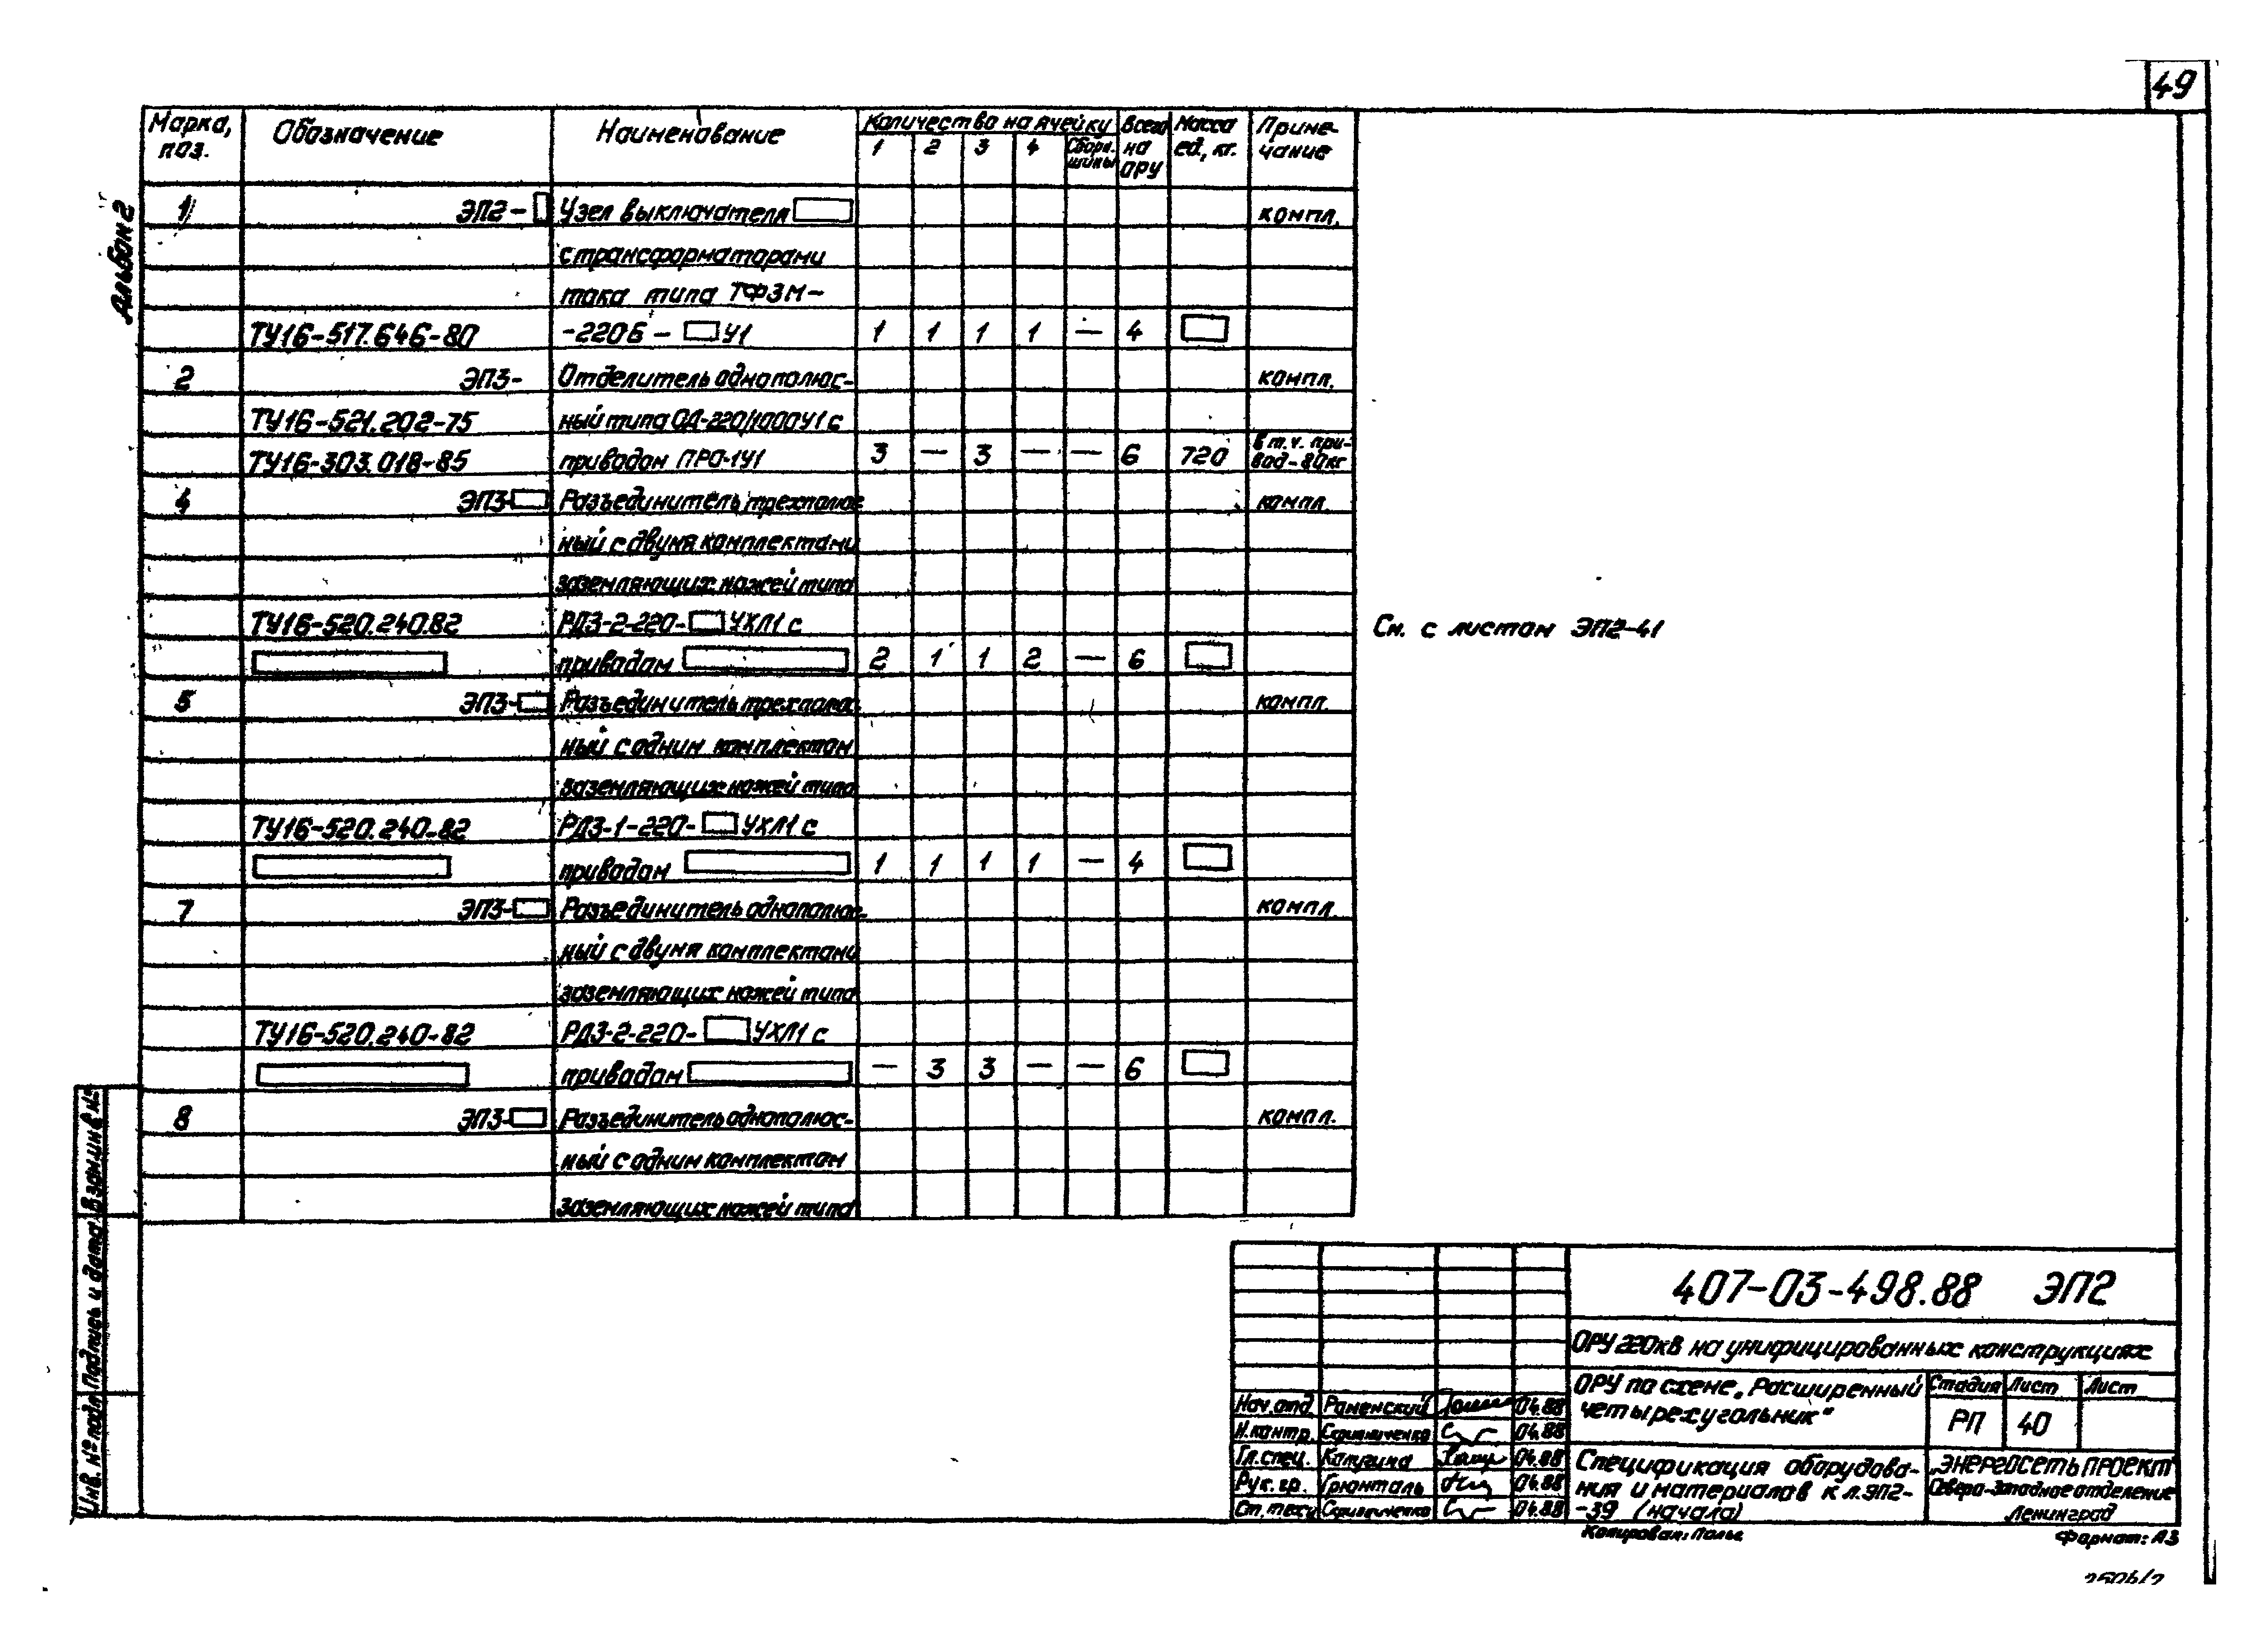 49
Альбом 2
Марка, поз. Обозначение Наименование Количество на ячейку Всего на ОРУ Масса ед., кг. Приме- чание
1 2 3 4 Сборн. шины
1 ЭП2- Узел выключателя компл.
с трансформаторами
тока типа ТФЗМ-
ТУ16-517.646-80 -220Б- У1 1 1 1 1 — 4
2 ЭП3- Отделитель однополюс- компл.
ТУ16-521.202-75 ный типа ОД-220/1000У1 с
ТУ16-303.018-85 приводом ПРО-1У1 3 — 3 — — 6 720 в т.ч. при- вод-80кг
4 ЭП3- Разъединитель трехполюс компл.
ный с двумя комплектами
заземляющих ножей типа
ТУ16-520.240.82 РДЗ-2-220- УХЛ1 с
приводом 2 1 1 2 — 6
5 ЭП3- Разъединитель трехполюс компл.
ный с одним комплектом
заземляющих ножей типа
ТУ16-520.240-82 РДЗ-1-220- УХЛ1 с
приводом 1 1 1 1 — 4
7 ЭП3- Разъединитель однополюс- компл.
ный с двумя комплектами
заземляющих ножей типа
ТУ16-520.240-82 РДЗ-2-220- УХЛ1 с
приводом — 3 3 — — 6
8 ЭП3- Разъединитель однополюс- компл.
ный с одним комплектом
заземляющих ножей типа
См. с листом ЭП2-41
Инв. № подл. Подпись и дата Взам.инв.№
407-03-498.88 ЭП2
ОРУ 220кВ на унифицированных конструкциях
ОРУ по схеме „Расширенный
четырехугольник"
Стадия Лист Лист
РП 40
Нач.отд. Раменский 04.88
Н.контр. 04.88
Гл.спец. Калугина 04.88
Рук. гр. Грюнталь 04.88
Ст.техн 04.88
Спецификация оборудова-
ния и материалов к л.ЭП2-
-39 (начало)
„ЭНЕРГОСЕТЬПРОЕКТ"
Северо-Западное отделение
Ленинград
Копировал:
Формат: А3